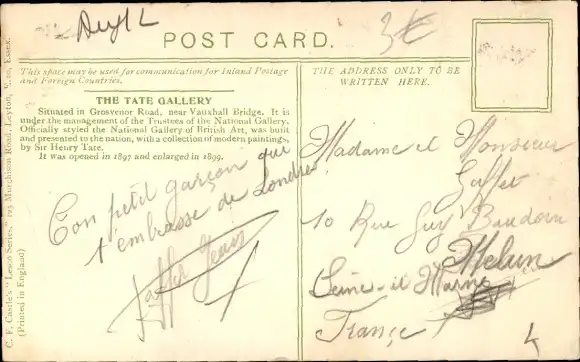 3€
POST CARD.
This space may be used for communication for Inland Postage
and Foreign Countries.
THE TATE GALLERY
Situated in Grosvenor Road, near Vauxhall Bridge. It is
under the management of the Trustees of the National Gallery.
Officially styled the National Gallery of British Art, was built
and presented to the nation, with a collection of modern paintings,
by Sir Henry Tate.
It was opened in 1897 and enlarged in 1899.
Ton petit garçon qui
t'embrasse de Londres
Jean
THE ADDRESS ONLY TO BE
WRITTEN HERE.
Madame et Monsieur
10 Rue Guy Baudoin
Melun
Seine-et-Marne
France
C. F. Castle's "Lesco Series," 193 Murchison Road, Leyton, Essex.
(Printed in England)